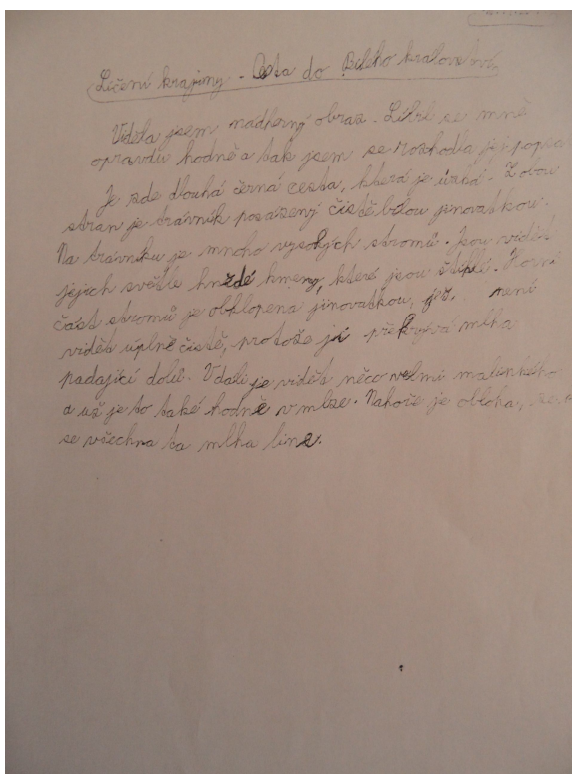 Líčení krajiny - Cesta do Bílého království
Viděla jsem nádherný obraz. Líbil se mně
opravdu hodně a tak jsem se rozhodla jej popsa
Je zde dlouhá černá cesta, která je úzká. Z obou
stran je trávník posázený čistě bílou jinovatkou.
Na trávníku je mnoho vysokých stromů. Jsou vidět
jejich světle hnědé kmeny, které jsou štíhlé. Horní
část stromů je obklopena jinovatkou, jež není
vidět úplně čistě, protože ji překrývá mlha
padající dolů. V dáli je vidět něco velmi malinkého
a už je to také hodně v mlze. Nahoře je obloha,
se všechna ta mlha line.